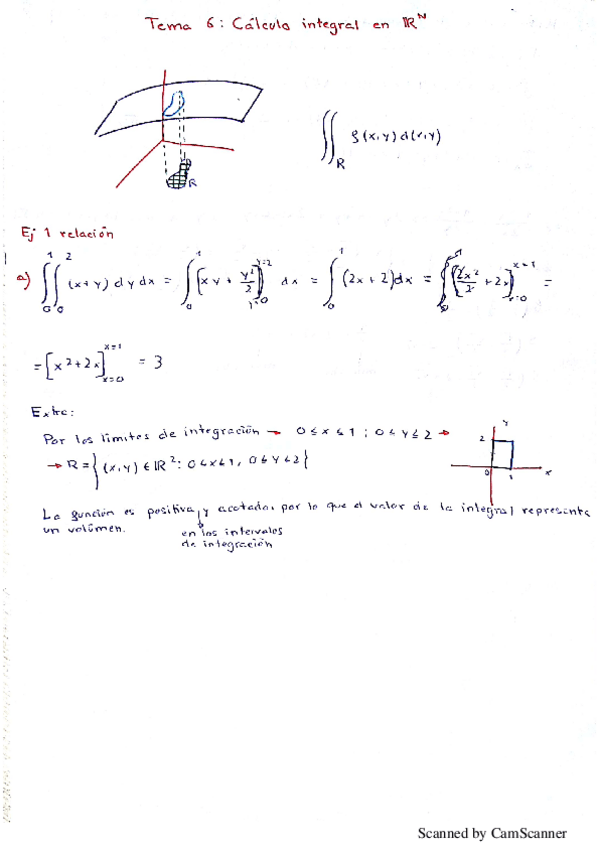 Tema 6: Cálculo integral en ℝᴺ
∬_R f(x,y) d(x,y)
R
Ej 1 relación
a) ∫₀¹ ∫₀² (x+y) dy dx = ∫₀¹ [xy + y²/2]_{y=0}^{y=2} dx = ∫₀¹ (2x+2) dx = [2x²/2 + 2x]_{x=0}^{x=1} =
= [x²+2x]_{x=0}^{x=1} = 3
Extra:
Por los límites de integración → 0≤x≤1 ; 0≤y≤2 →
→ R = {(x,y) ∈ ℝ²: 0≤x≤1, 0≤y≤2}
y
2
0
1
x
La función es positiva y acotada, por lo que el valor de la integral representa
un volúmen.
en los intervalos
de integración
Scanned by CamScanner